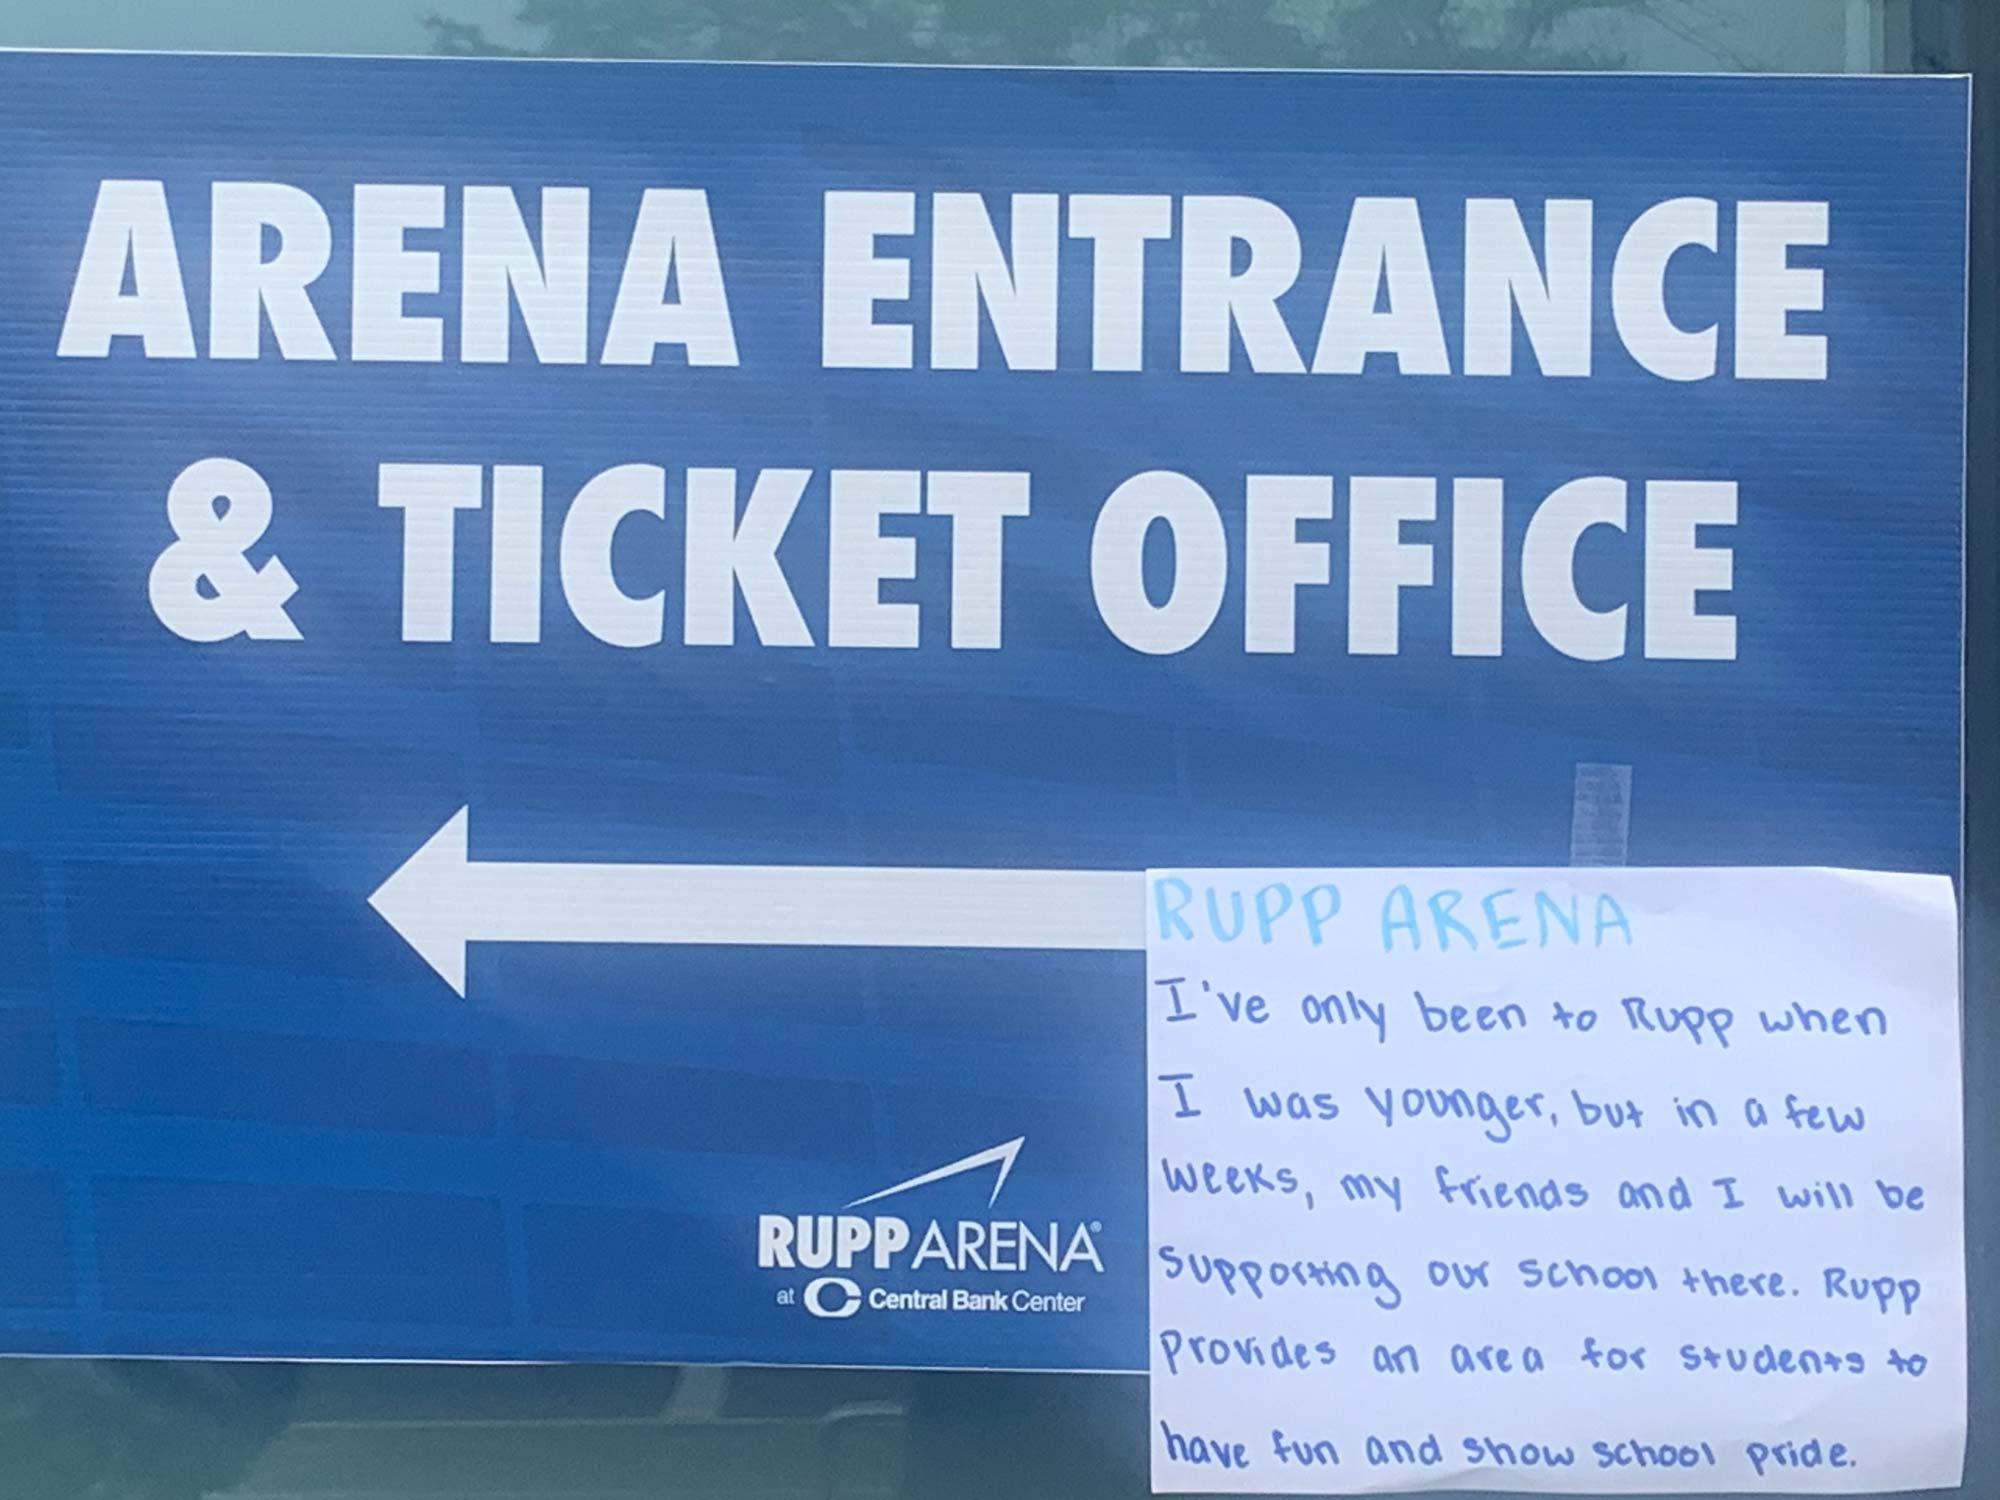 ARENA ENTRANCE
& TICKET OFFICE
RUPP ARENA®
at Central Bank Center
RUPP ARENA
I've only been to Rupp when
I was younger, but in a few
weeks, my friends and I will be
supporting our school there. Rupp
provides an area for students to
have fun and show school pride.